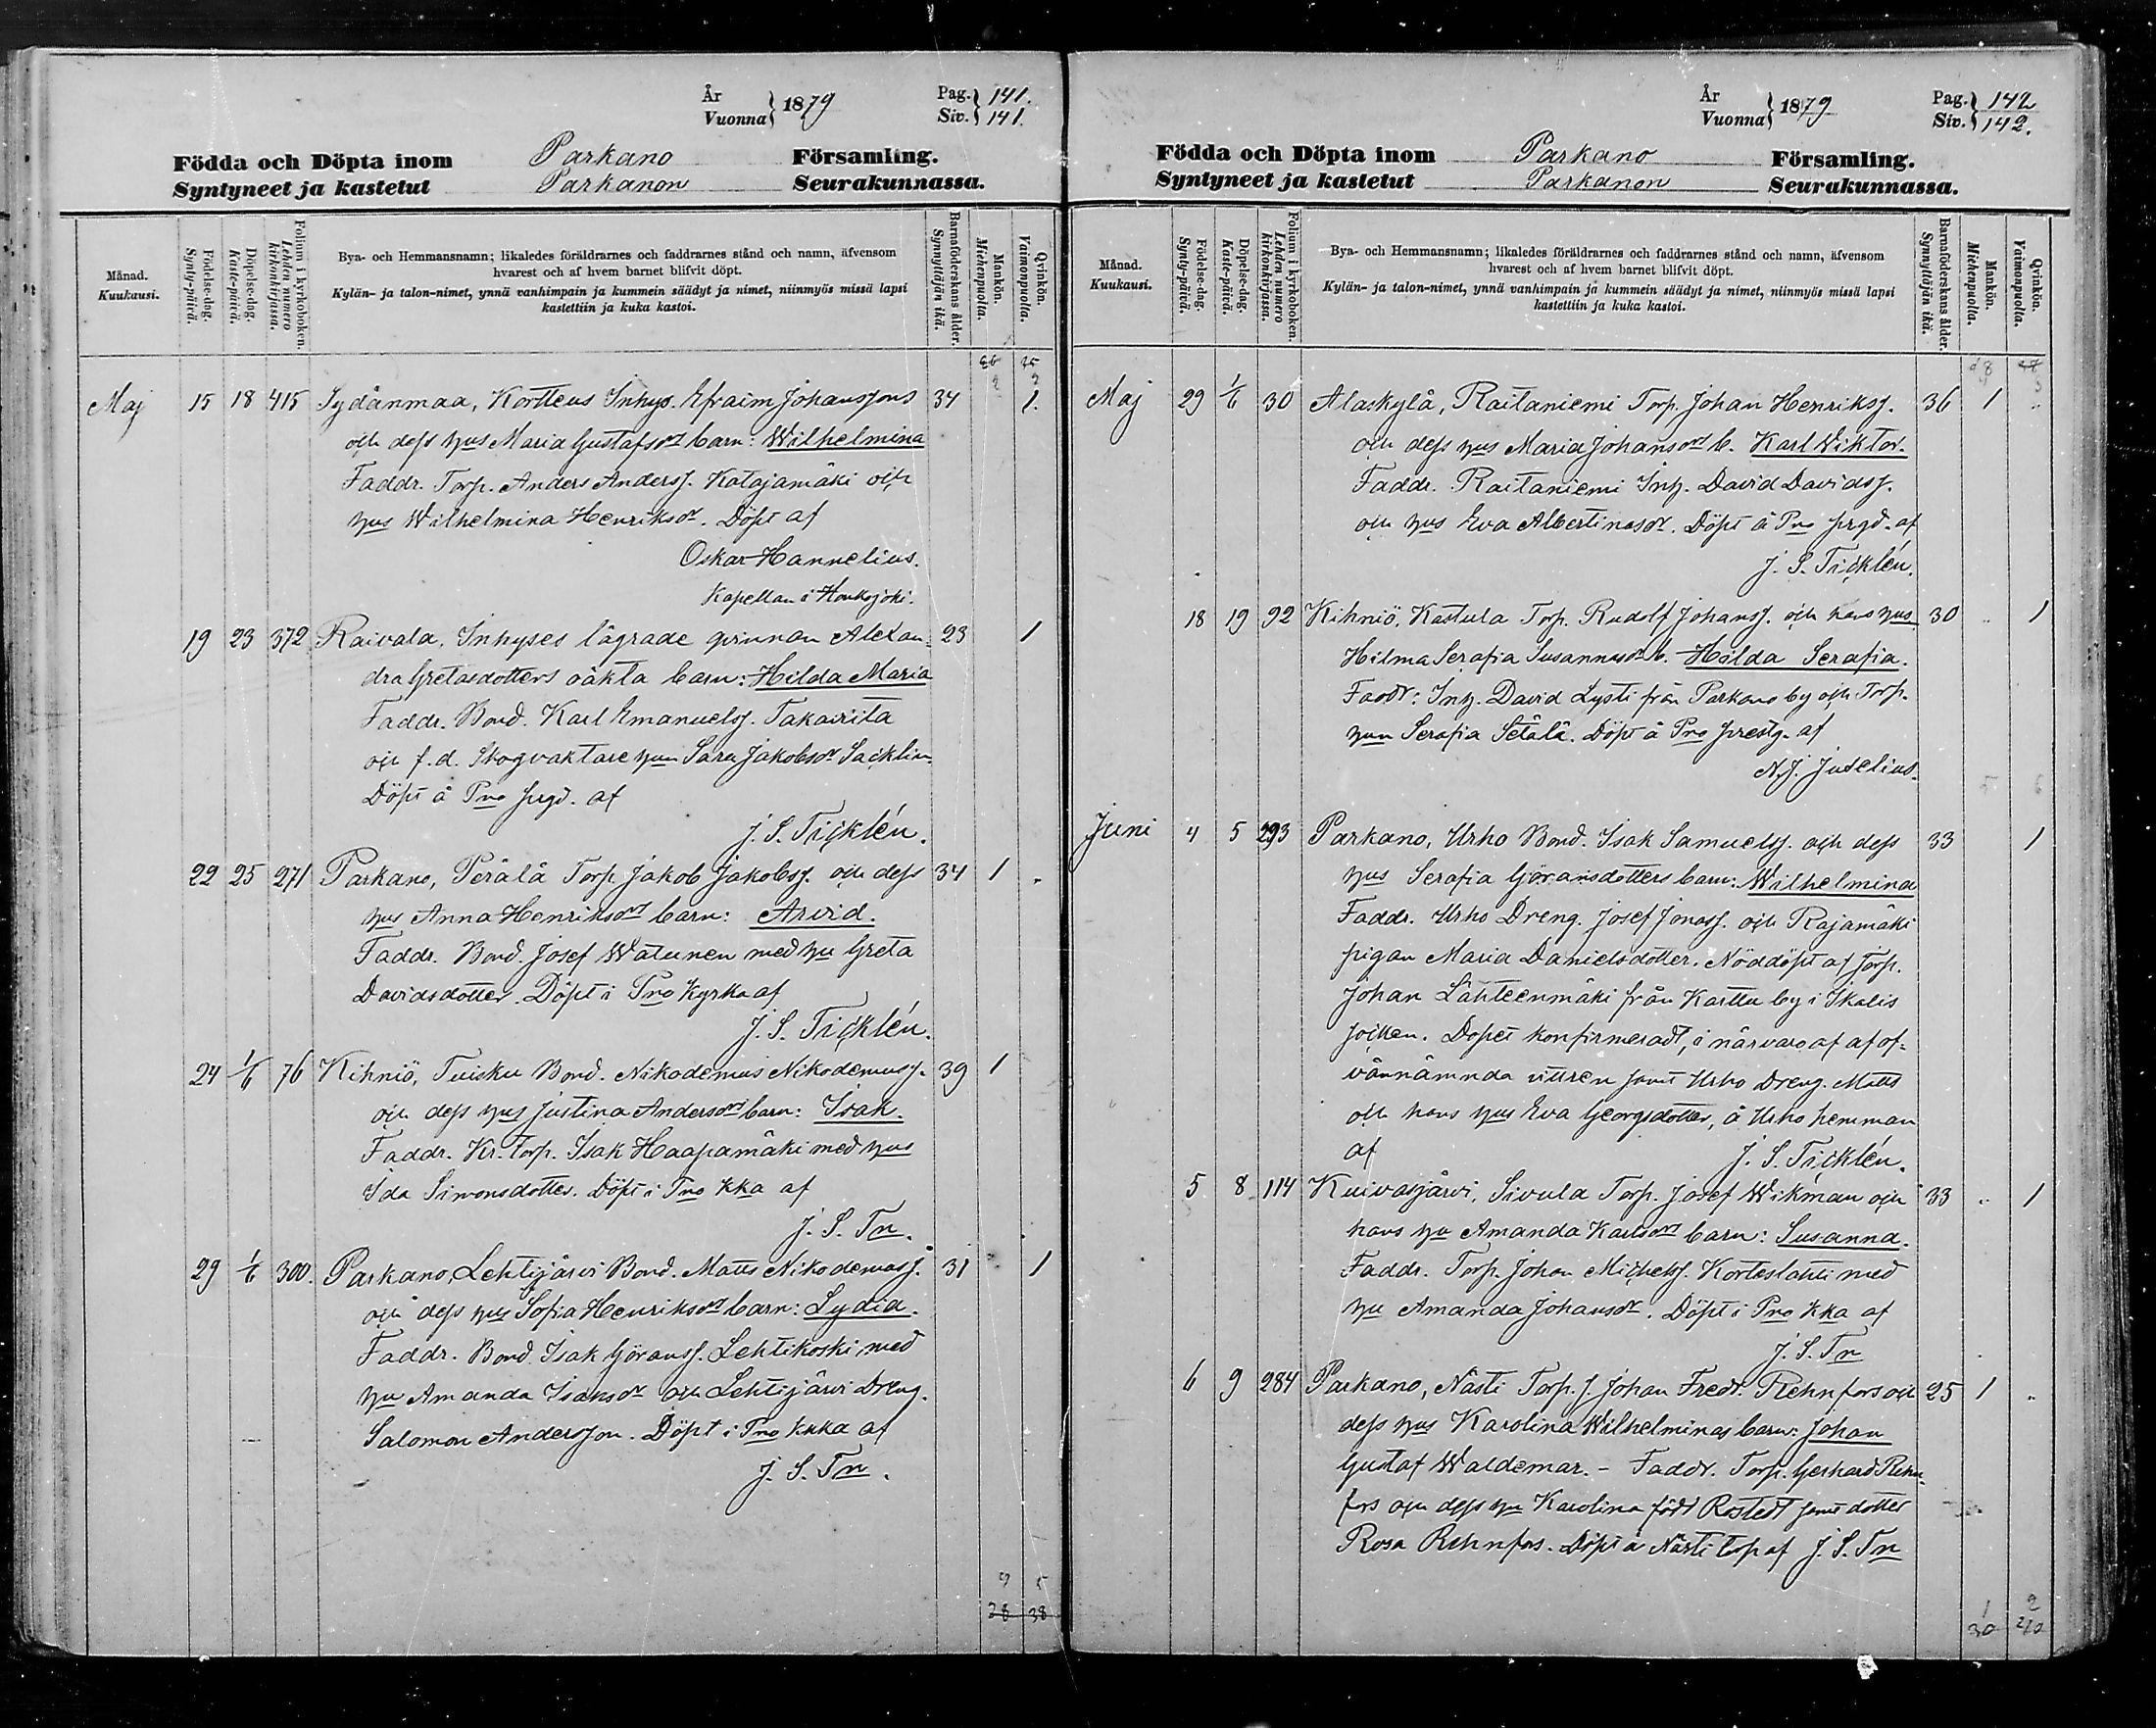 År
Vuonna } 1879
Pag. } 141.
Siv. } 141.
Födda och Döpta inom Parkano Församling.
Syntyneet ja kastetut Parkanon Seurakunnassa.
Månad.
Kuukausi.
Födelse-dag.
Synty-päivä.
Döpelse-dag.
Kaste-päivä.
Folium i kyrkoboken.
Lehden numero
kirkonkirjassa.
Bya- och Hemmansnamn; likaledes föräldrarnes och faddrarnes stånd och namn, äfvensom
hvarest och af hvem barnet blifvit döpt.
Kylän- ja talon-nimet, ynnä vanhimpain ja kummein säädyt ja nimet, niinmyös missä lapsi
kastettiin ja kuka kastoi.
Barnaföderskans ålder.
Synnyttäjän ikä.
Mankön.
Miehenpuolia.
Qvinkön.
Vaimonpuolia.
Maj 15 18 415 Sydänmaa, Kortteus Inhys. Efraim Johanssons 34 1.
och dess hus Maria Gustafsdrs barn: Wilhelmina
Faddr. Torp. Anders Anderss. Katajamäki och
hus Wilhelmina Henriksdr. Döpt af
Oskar Hannelius.
Kapellan i Honkajoki.
19 23 372 Raivala, Inhyses lägrade qvinnan Alexan- 23 1
dra Gretasdotters oäkta barn: Hilda Maria
Faddr. Bond. Karl Emanuelss. Takariita
och f.d. Skogvaktare hun Sara Jakobsdr Sacklin
Döpt å Pno prgd. af
J. S. Ticklén.
22 25 271 Parkano, Perälä Torp. Jakob Jakobss. och dess 34 1 "
hus Anna Henriksdrs barn: Arvid.
Faddr. Bond. Josef Watunen med hu Greta
Davidsdotter. Döpt i Pno Kyrka af
J. S. Ticklén.
24 1/6 76 Kihniö, Tuisku Bond. Nikodemus Nikodemuss. 39 1
och dess hus Justina Andersdrs barn: Isak.
Faddr. Kr. Torp. Isak Haapamäki med hus
Ida Simonsdotter. Döpt i Pno kka af
J. S. Tn.
29 1/6 300. Parkano, Lehtijärvi Bond. Matts Nikodemuss. 31 " 1
och dess hus Sofia Henriksdrs barn: Lydia.
Faddr. Bond. Isak Göranss. Lehtikoski med
hu Amanda Isaksdr och Lehtijärvi Dreng.
Salomon Andersson. Döpt i Pno kkka af
J. S. Tn.
9 5
28 38
År
Vuonna } 1879
Pag. } 142
Siv. } 142.
Födda och Döpta inom Parkano Församling.
Syntyneet ja kastetut Parkanon Seurakunnassa.
Månad.
Kuukausi.
Födelse-dag.
Synty-päivä.
Döpelse-dag.
Kaste-päivä.
Folium i kyrkoboken.
Lehden numero
kirkonkirjassa.
Bya- och Hemmansnamn; likaledes föräldrarnes och faddrarnes stånd och namn, äfvensom
hvarest och af hvem barnet blifvit döpt.
Kylän- ja talon-nimet, ynnä vanhimpain ja kummein säädyt ja nimet, niinmyös missä lapsi
kastettiin ja kuka kastoi.
Barnaföderskans ålder.
Synnyttäjän ikä.
Mankön.
Miehenpuolia.
Qvinkön.
Vaimonpuolia.
Maj 29 1/6 30 Alaskylä, Raitaniemi Torp. Johan Henrikss. 36 1 "
och dess hus Maria Johansdrs b. Karl Wiktor.
Faddr. Raitaniemi Inh. David Davidss.
och hus Eva Albertinasdr. Döpt å Pno prgd. af
J. S. Ticklén.
18 19 92 Kihniö, Kastula Torp. Rudolf Johanss. och hans hus 30 " 1
Hilma Serafia Susannasdrs b. Hilda Serafia.
Faddr: Inh. David Lysti från Parkano by och Torp.
hun Serafia Setälä. Döpt å Pno prestg. af
N. J. Juselius.
Juni 4 5 293 Parkano, Urho Bond. Isak Samuelss. och dess 33 1
hus Serafia Göransdotters barn: Wilhelmina
Faddr. Urho Dreng. Josef Jonass. och Rajamäki
pigan Maria Danielsdotter. Nöddöpt af Torp.
Johan Lähteenmäki från Karttu by i Ikalis
socken. Dopet konfirmeradt, i närvaro af of-
vannämnda vittnen samt Urho Dreng. Matts
och hans hus Eva Georgsdotter, å Urho hemman
af J. S. Ticklén.
5 8 114 Kuivasjärvi, Sivula Torp. Josef Wikman och 33 " 1
hans hu Amanda Karlsdrs barn: Susanna.
Faddr. Torp. Johan Michelss. Korteslahti med
hu Amanda Johansdr. Döpt i Pno kka af
J. S. Tn
6 9 284 Parkano, Nästi Torp. s. Johan Fredr. Rehnfors och 25 1 "
dess hus Karolina Wilhelminas barn: Johan
Gustaf Waldemar. - Faddr. Torp. Gerhard Rehn-
fors och dess hu Karolina född Rostedt samt dotter
Rosa Rehnfors. Döpt å Nästi torp af J. S. Tn
1 2
30